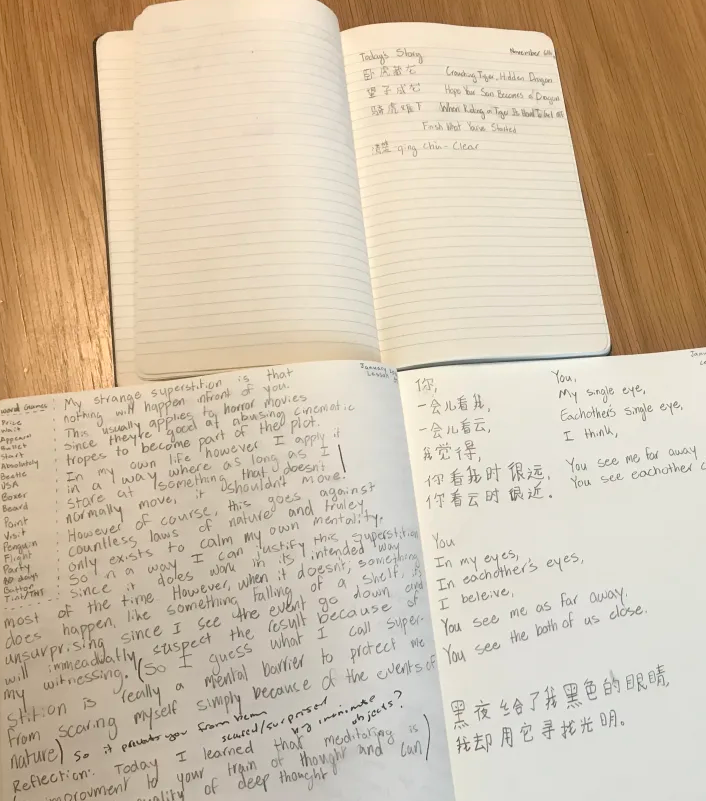 Today's Story
November 6th,
卧虎藏龙 Crouching Tiger, Hidden Dragon
望子成龙 Hope Your Son Becomes a Dragon
骑虎难下 When Riding a Tiger Its Hard To Get Off
Finish What You've Started
清楚 qing chu - Clear
January
Lesson
Word Games:
Price
Wait
Appeard
Bullet
Start
Absolutely
Beetle
USA
Boxer
Beard
Point
Visit
Penguin
Flight
Party
Button
My strange superstition is that
nothing will happen infront of you.
This usually applies to horror movies
since they're good at abusing cinematic
tropes to become part of the plot.
In my own life however I apply it
in a way where as long as I
stare at something that doesn't
normally move, it shouldn't move!
However of course, this goes against
countless laws of nature and truley
only exists to calm my own mentality.
So in a way I can justify this superstition
since it does work in its intended way
most of the time. However, when it doesn't, something
does happen, like something falling of a shelf, it's
unsurprising since I see the event go down and
will immeadiatly suspect the result because of
my witnessing. (So I guess what I call super-
stition is really a mental barrier to protect me
from scaring myself simply because of the events of
nature) So it prevents you from being
scared/surprised
by inanimate
objects?
Reflection: Today I learned that meditating is
improvment to your train of thought and can
quality of deep thought
你,
一会儿看我,
一会儿看云,
我觉得,
你看我时很远,
你看云时很近。
You,
My single eye,
Eachother's single eye,
I think,
You see me far away
You see eachother
You
In my eyes,
In eachother's eyes,
I beleive,
You see me as far away.
You see the both of us close.
黑夜给了我黑色的眼睛
我却用它寻找光明。